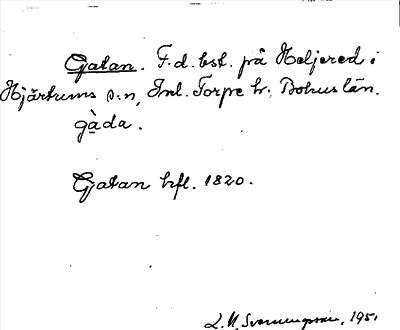 Gatan. F.d. bst. på Heljered i
Hjärtums s:n, Inl. Torpe hr., Bohus län.
gàda.
Gatan hfl. 1820.
1951